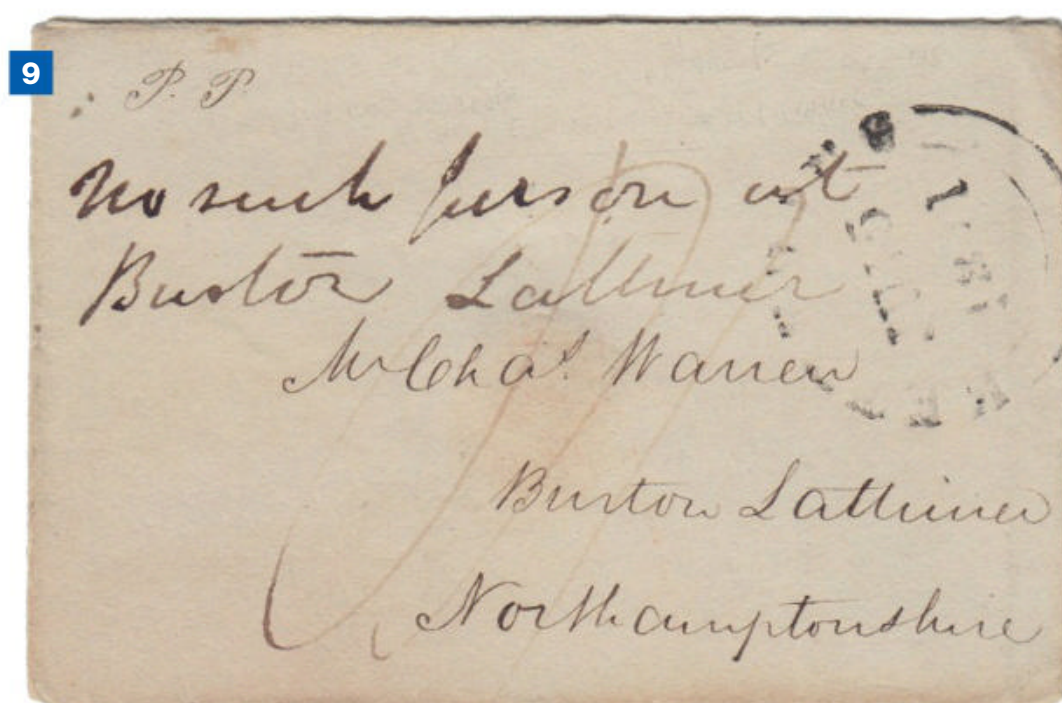 9
P. P.
No such person at
Burton Lattimer
Mr Chas. Warren
Burton Lattimer
Northamptonshire